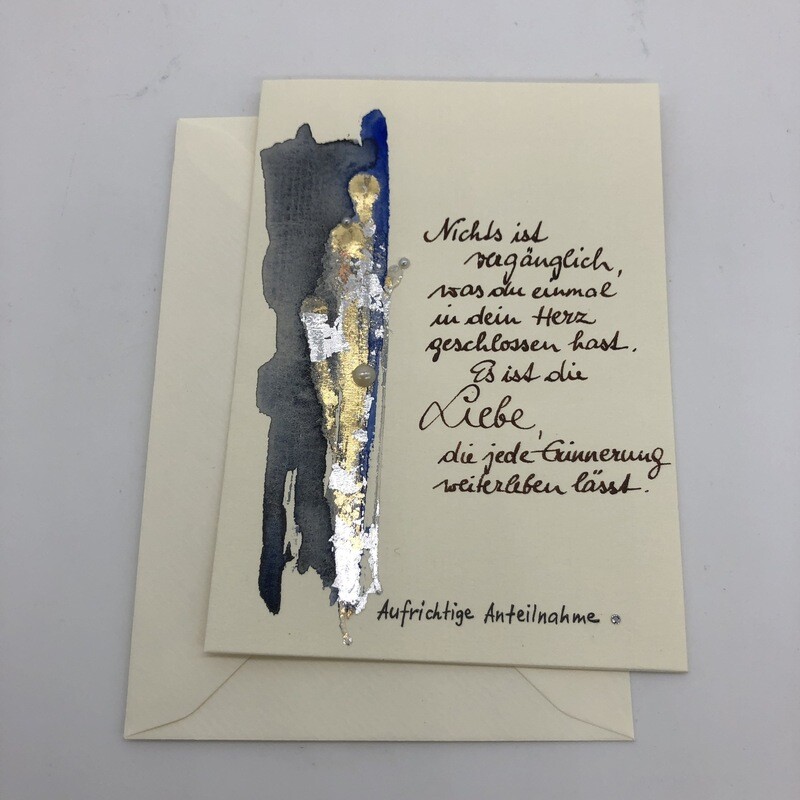 Nichts ist
vergänglich,
was du einmal
in dein Herz
geschlossen hast.
Es ist die
Liebe,
die jede Erinnerung
weiterleben lässt.
Aufrichtige Anteilnahme